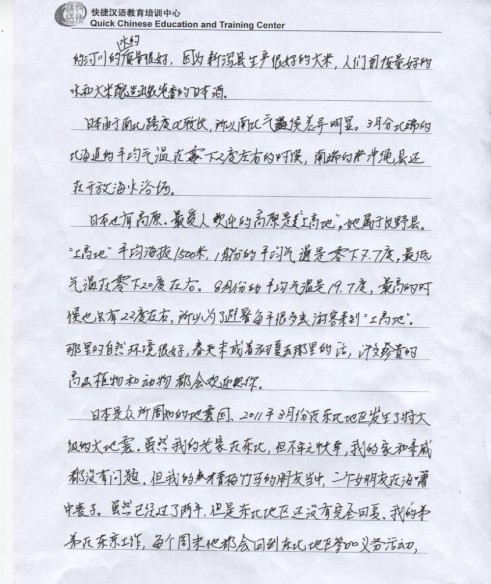 快捷汉语教育培训中心
Quick Chinese Education and Training Center
水的
的河川的质量很好，因为新泻县生产很好的大米，人们用质量好的
水和大米酿造出很香的日本酒。
日本由于南北跨度比较长，所以南北气温候差异明显。3月分北端的
北海道的平均气温在零下2度左右的时候，南端的冲绳县还
在开放海水浴场。
日本也有高原。最受人欢迎的高原是“上高地”，她属于长野县。
“上高地”平均海拔1500米，1月份的平均气温是零下7.7度，最低
气温在零下20度左右。8月份的平均气温是19.7度，最高的时
候也只有22度左右，所以为了避暑每年很多去游客来到“上高地”。
那里的自然环境很好，春天来或者初夏去那里的话，许多珍贵的
高山植物和动物都会欢迎你。
日本是众所周知的地震国，2011年3月份在东北地区发生了特大
级的大地震。虽然我的老家在东北，但不幸中大幸，我的家和亲戚
都没有问题，但我的青梅竹马的朋友当中，二个女朋友在海啸
中丧了。虽然已经过了两年，但是东北地区还没有完全回复。我的弟
弟在东京工作，每个周末他都会回到东北地区参加义务活动，